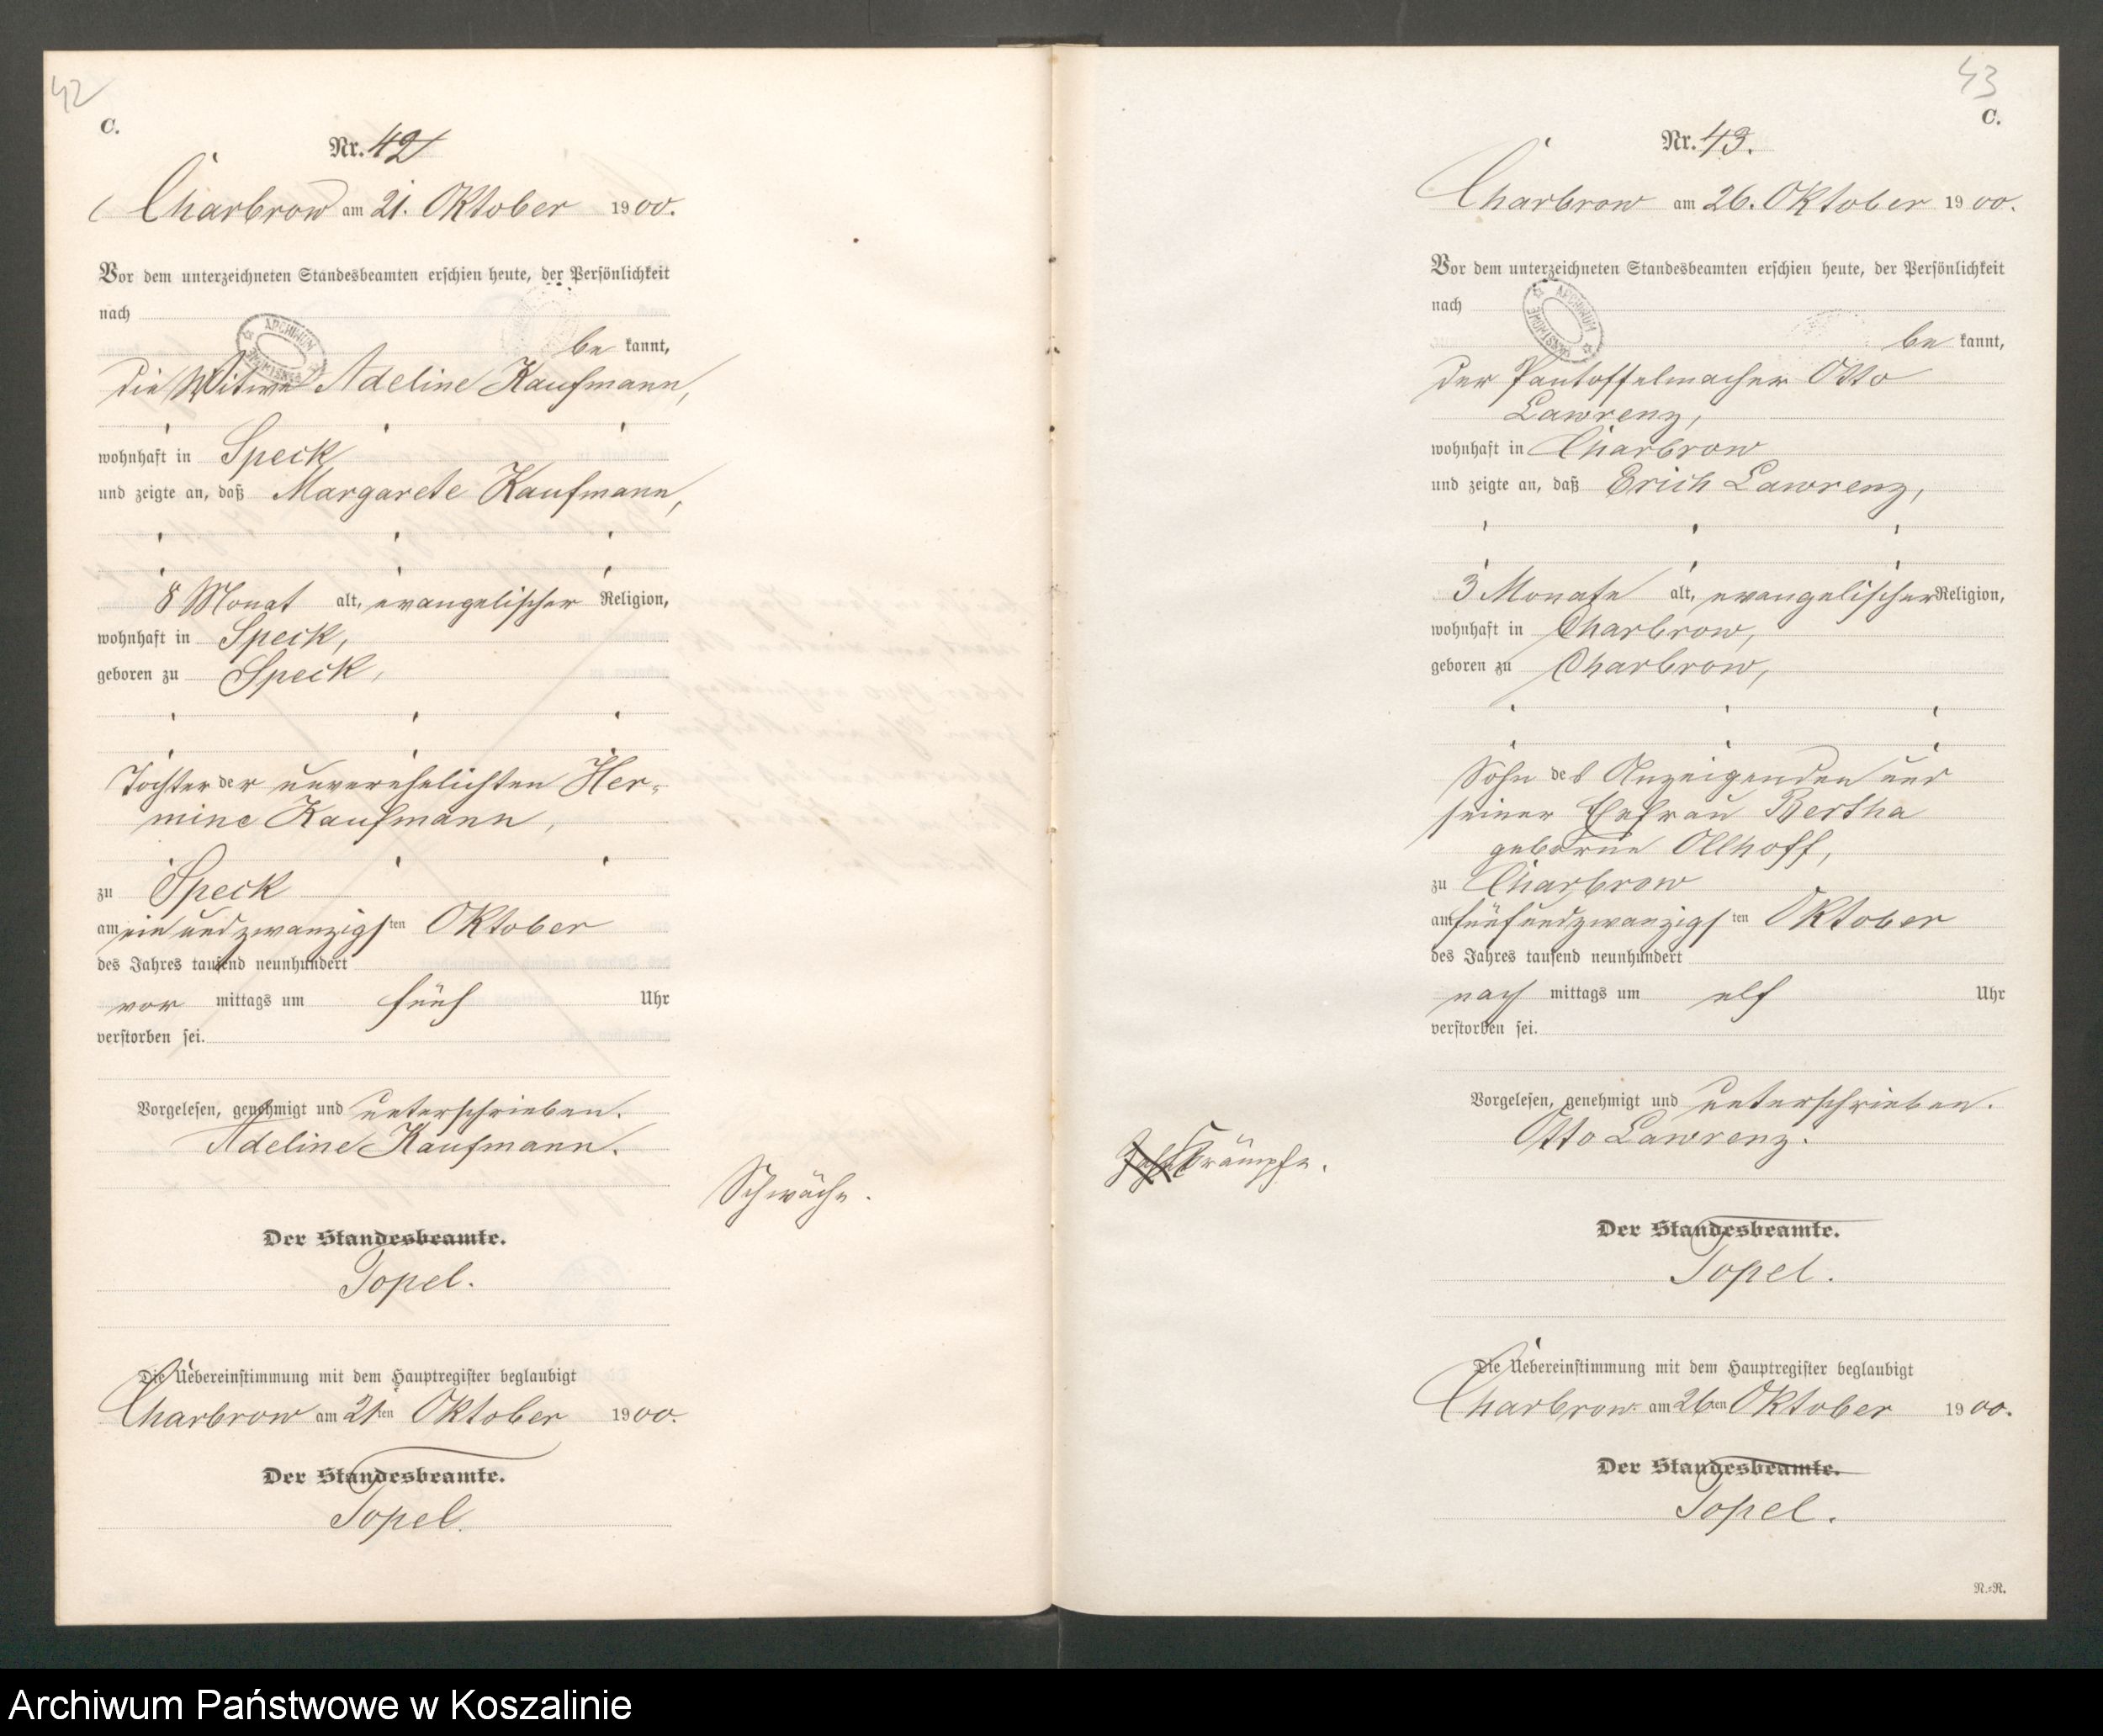 42
C.
Nr. 42
Charbrow am 21. Oktober 1900.
Vor dem unterzeichneten Standesbeamten erschien heute, der Persönlichkeit
nach
be kannt,
die Witwe Adeline Kaufmann,
wohnhaft in Speck
und zeigte an, daß Margarete Kaufmann,
8 Monat alt, evangelischer Religion,
wohnhaft in Speck,
geboren zu Speck,
Tochter der unverehelichten Her-
mine Kaufmann,
zu Speck
am ein und zwanzigsten Oktober
des Jahres tausend neunhundert
vor mittags um fünf Uhr
verstorben sei.
Vorgelesen, genehmigt und unterschrieben.
Adeline Kaufmann.
Schwäche.
Der Standesbeamte.
Topel.
Die Uebereinstimmung mit dem Hauptregister beglaubigt
Charbrow am 21ten Oktober 1900.
Der Standesbeamte.
Topel.
43
C.
Nr. 43.
Charbrow am 26. Oktober 1900.
Vor dem unterzeichneten Standesbeamten erschien heute, der Persönlichkeit
nach
be kannt,
der Pantoffelmacher Otto
Lawrenz,
wohnhaft in Charbrow
und zeigte an, daß Erich Lawrenz,
3 Monate alt, evangelischer Religion,
wohnhaft in Charbrow,
geboren zu Charbrow,
Sohn des Anzeigenden und
seiner Ehefrau Bertha
geborne Ollhoff,
zu Charbrow
am fünfundzwanzigsten Oktober
des Jahres tausend neunhundert
nach mittags um elf Uhr
verstorben sei.
Vorgelesen, genehmigt und unterschrieben.
Otto Lawrenz.
Krämpfe.
Der Standesbeamte.
Topel.
Die Uebereinstimmung mit dem Hauptregister beglaubigt
Charbrow am 26ten Oktober 1900.
Der Standesbeamte.
Topel.
R.=R.
Archiwum Państwowe w Koszalinie